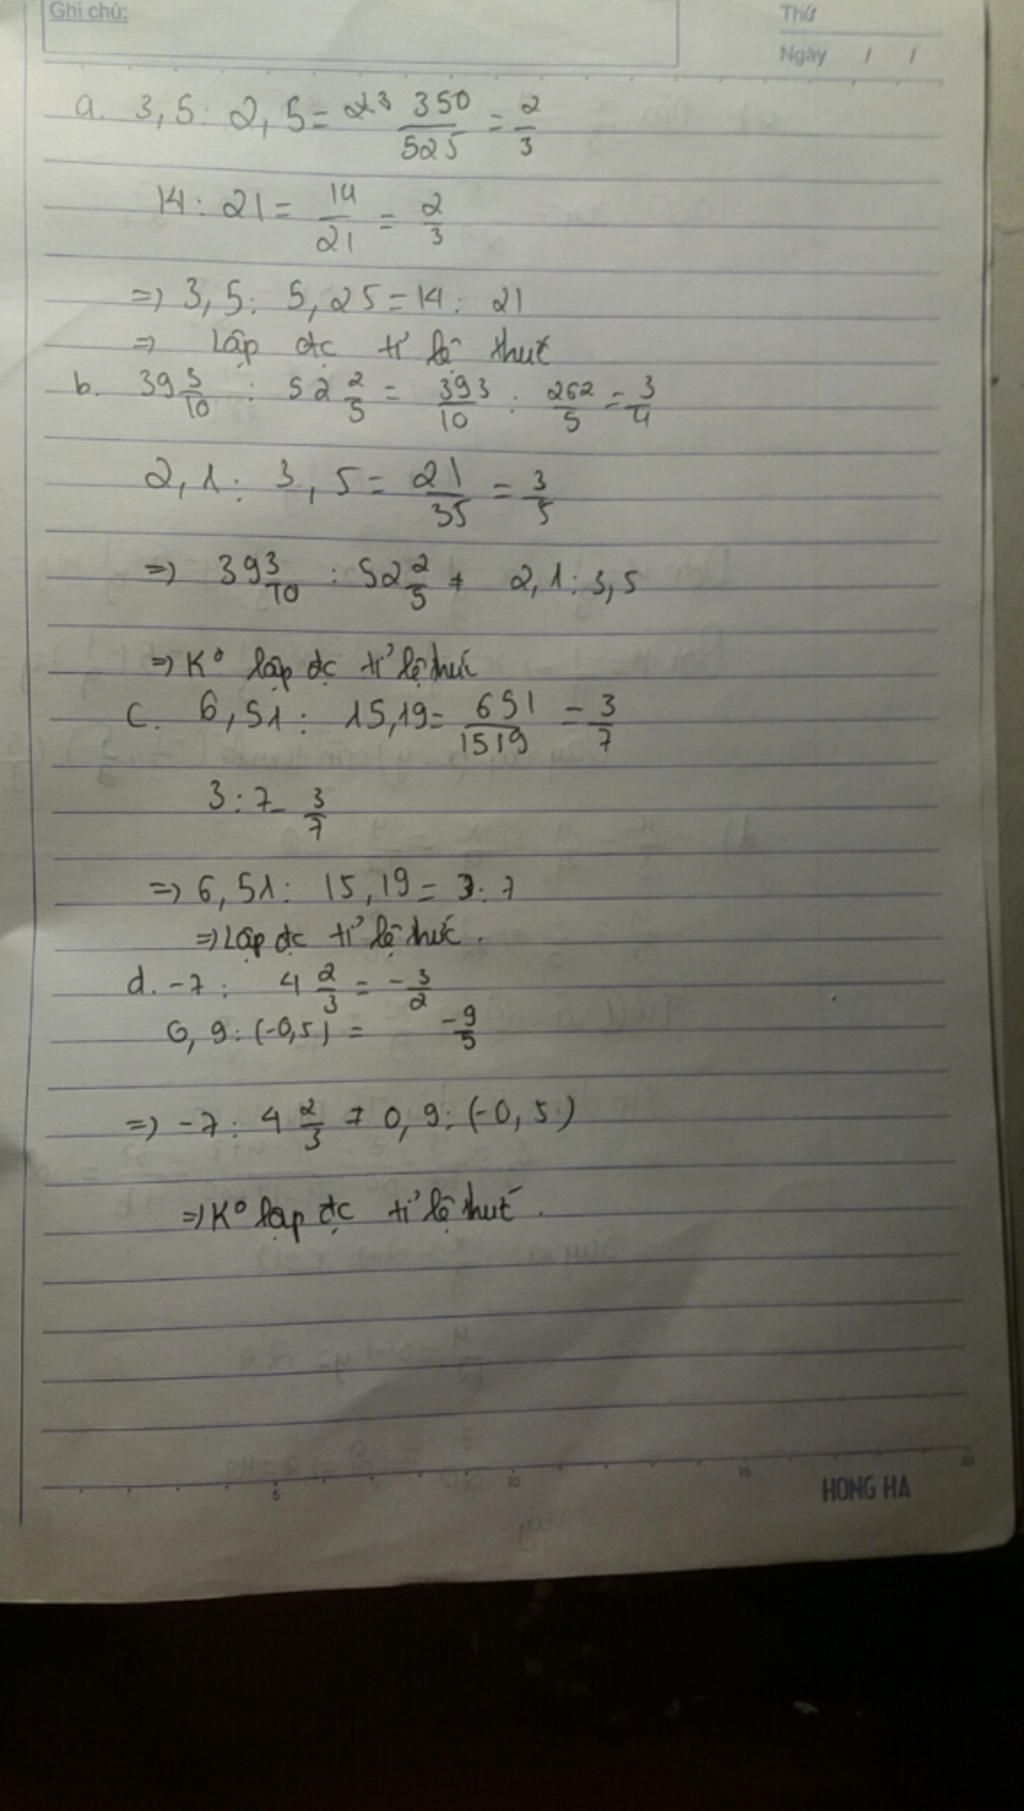 Ghi chú:
Thứ
Ngày / /
a. 3,5 : 2,5 = 23 350/525 = 2/3
14 : 21 = 14/21 = 2/3
=> 3,5 : 5,25 = 14 : 21
=> Lập đc tỉ lệ thưć
b. 39 3/10 : 52 2/5 = 393/10 : 262/5 = 3/4
2,1 : 3,5 = 21/35 = 3/5
=> 39 3/10 : 52 2/5 ≠ 2,1 : 3,5
=> K° lập đc tỉ lệ thức
c. 6,51 : 15,19 = 651/1519 = 3/7
3 : 7 = 3/7
=> 6,51 : 15,19 = 3 : 7
=> Lập đc tỉ lệ thức.
d. -7 : 4 2/3 = -3/2
0,9 : (-0,5) = -9/5
=> -7 : 4 2/3 ≠ 0,9 : (-0,5)
=> K° lập đc tỉ lệ thưć.
5 10 15 20
HONG HA